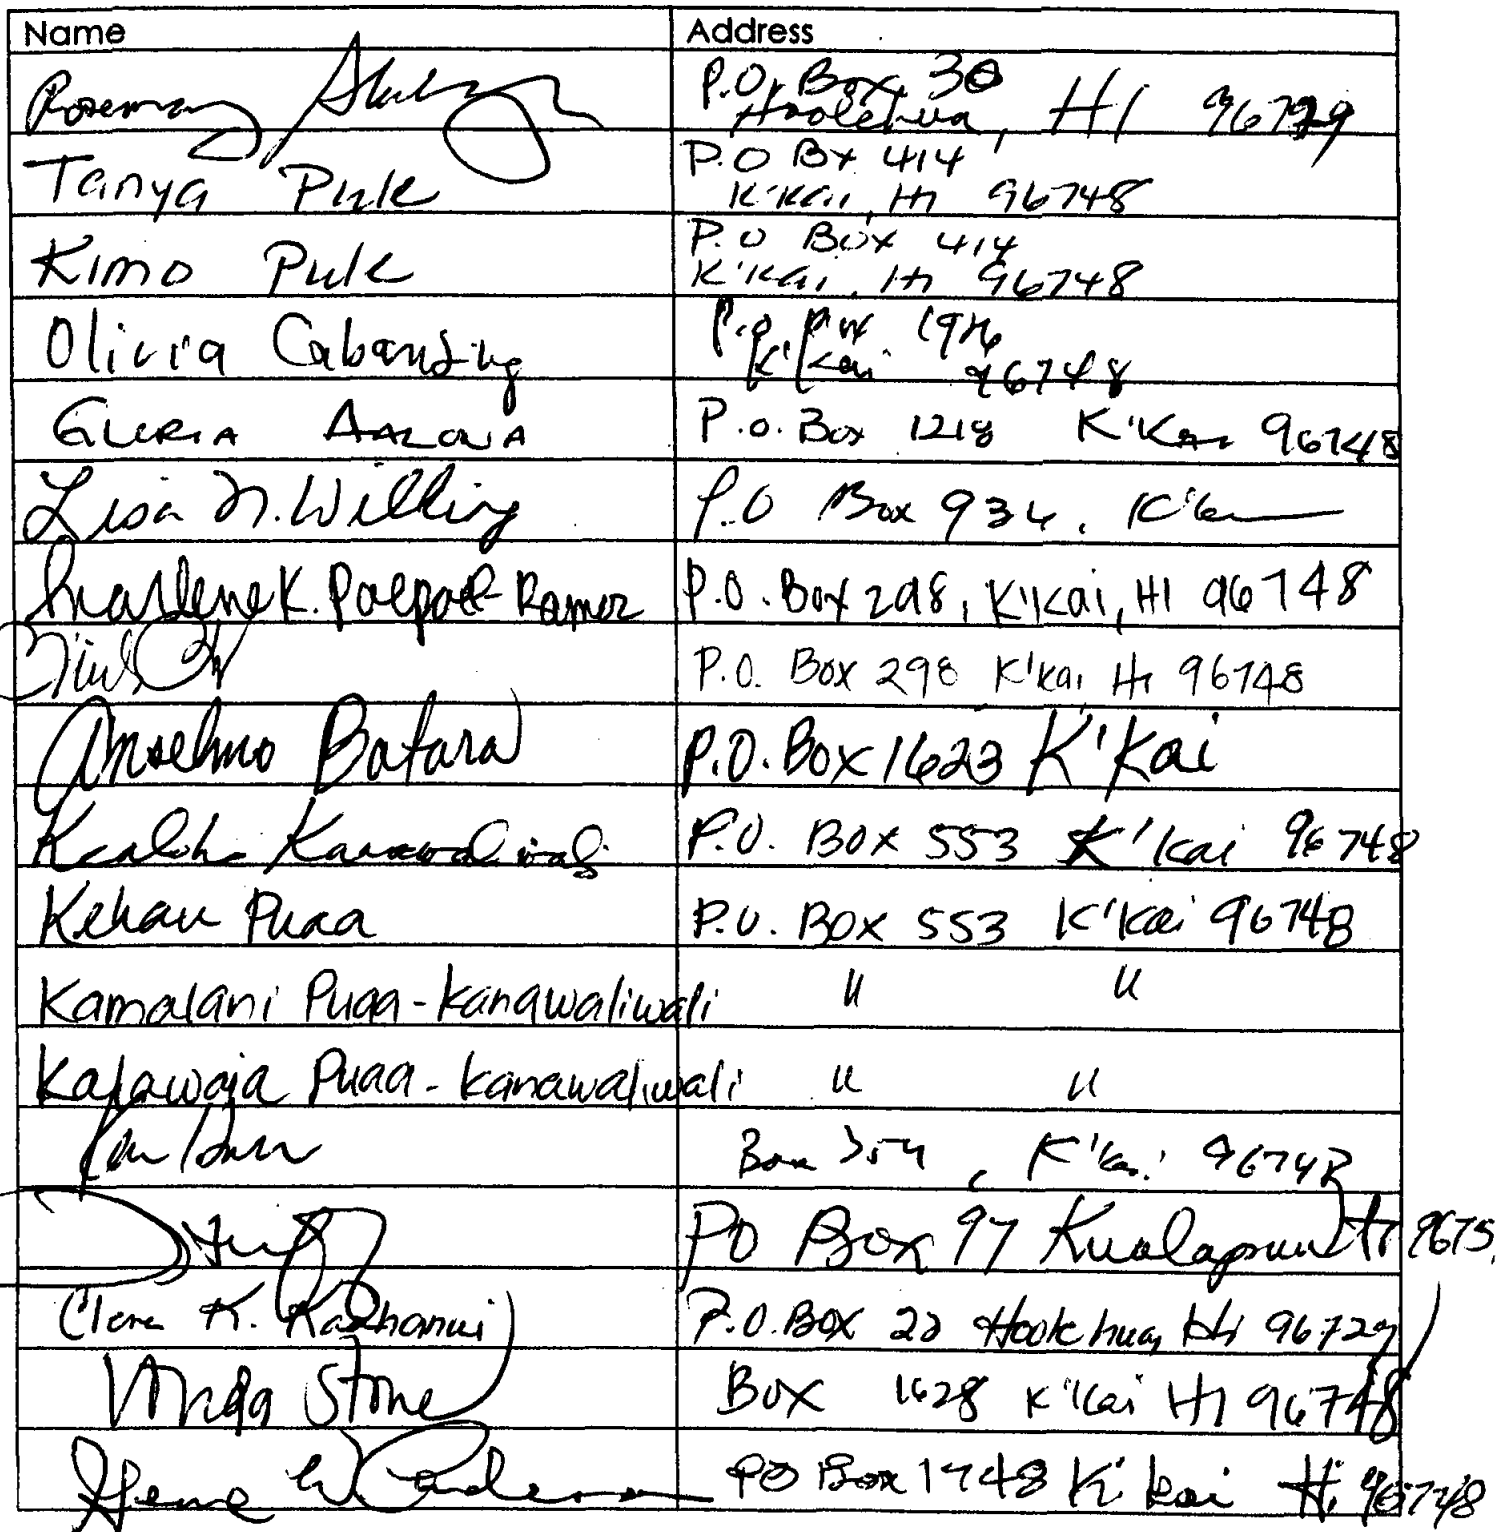 Name Address
Rosemary P.O. Box 30
Hoolehua, HI 96729
Tanya Pule P.O Bx 414
K'Kai, HI 96748
Kimo Pule P.O Box 414
K'Kai, HI 96748
Olivia Cabanding P.O. Box
K'Kai 96748
GLORIA P.O. Box 1218 K'Kai 96748
Lisa N. Willing P.O Box 934, K'Kai
K. Poepoe-Ramos P.O. Box 298, K'Kai, HI 96748
P.O. Box 298 K'Kai, HI 96748
Anselmo Batara P.O. Box 1623 K'Kai
Kealoha Kanawaliwali P.O. Box 553 K'Kai 96748
Kehau Puaa P.O. Box 553 K'Kai 96748
Kamalani Puaa-Kanawaliwali " "
Puaa-Kanawaliwali " "
Box 354, K'Kai 96748
PO Box 97 Kualapuu HI 9675
Clara K. P.O. Box 22 Hoolehua, HI 96729
Stone Box 1628 K'Kai HI 96748
PO Box 1748 K'Kai Hi 96748